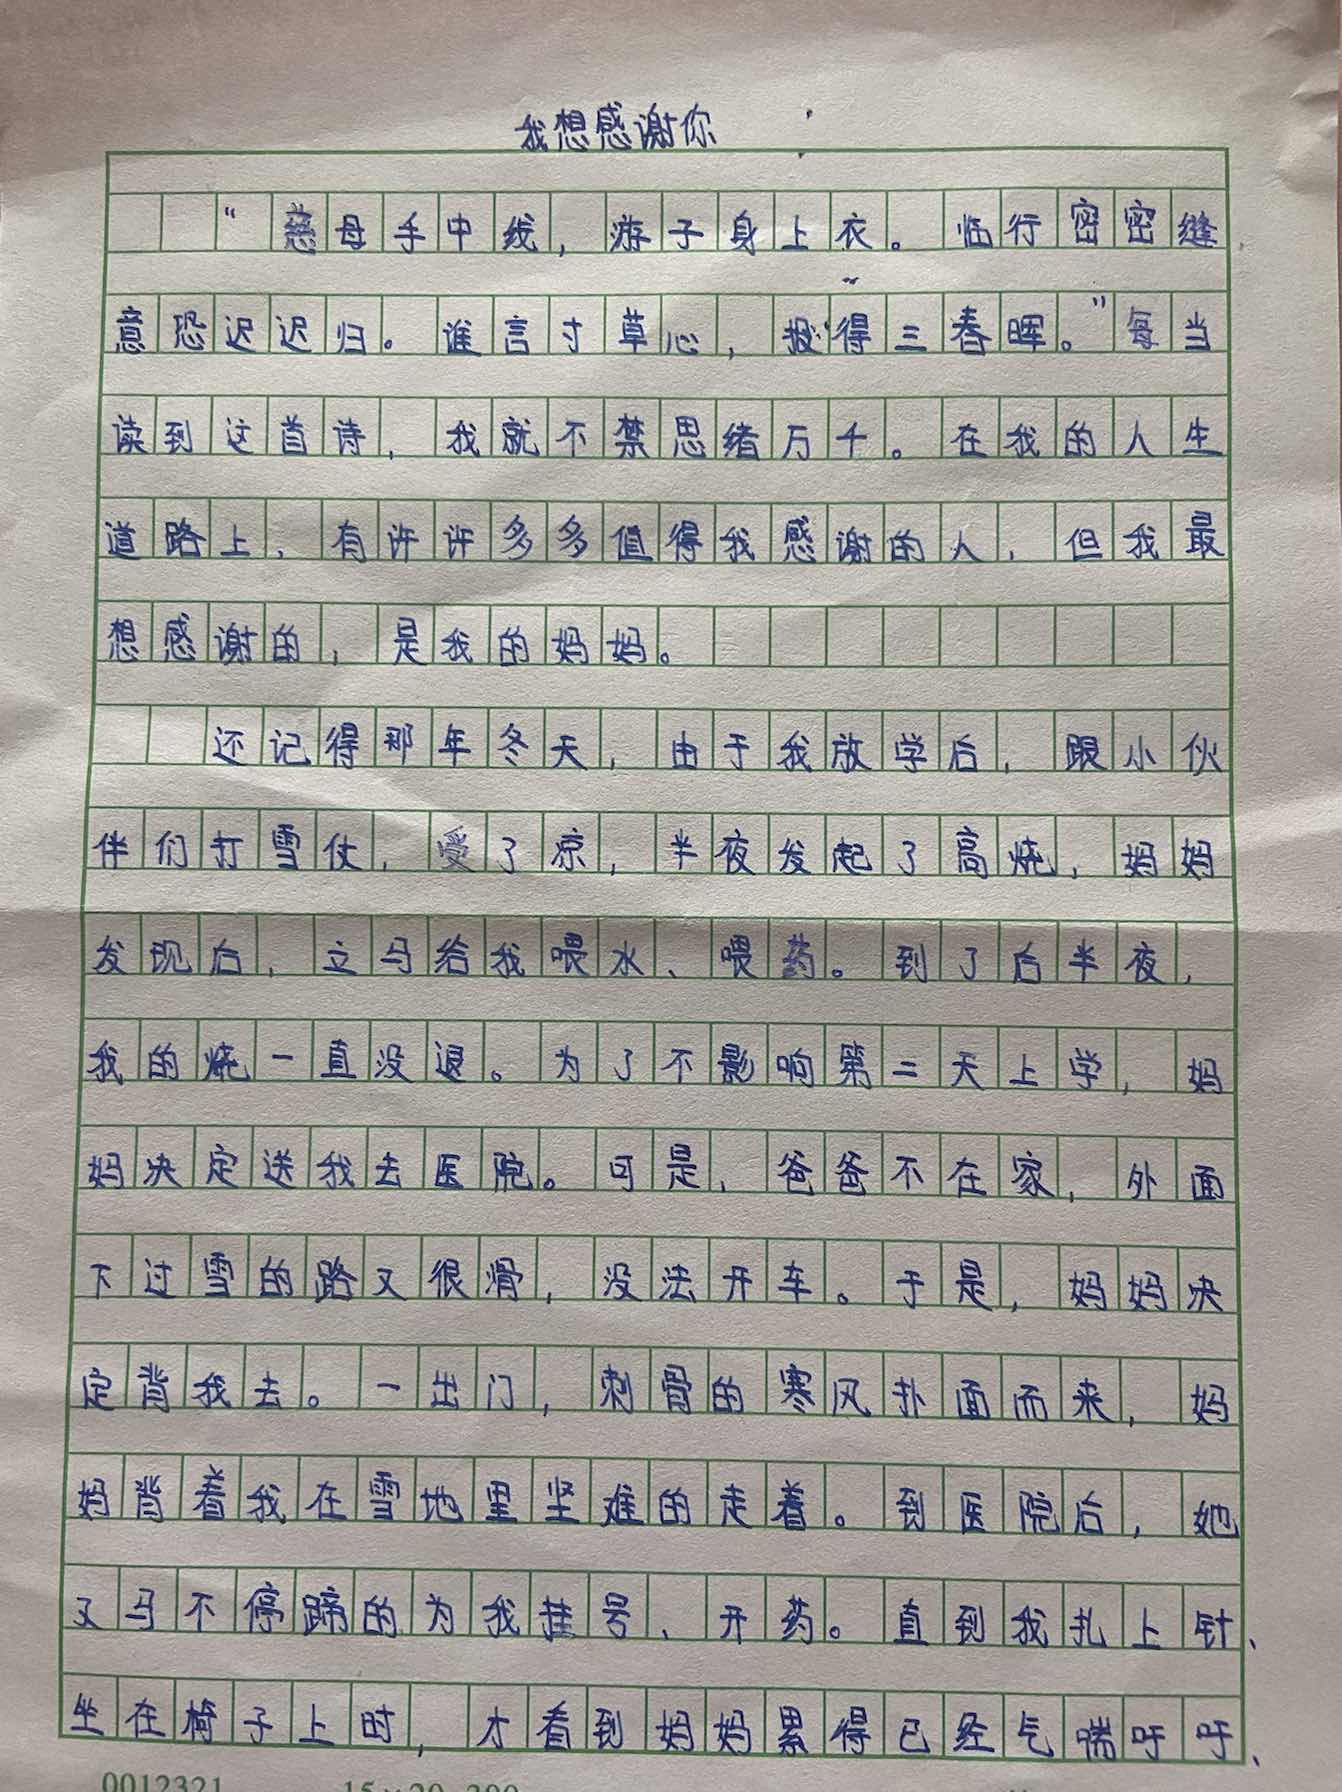 我想感谢你
“慈母手中线，游子身上衣。临行密密缝
意恐迟迟归。谁言寸草心，报得三春晖。”每当
读到这首诗，我就不禁思绪万千。在我的人生
道路上，有许许多多值得我感谢的人，但我最
想感谢的，是我的妈妈。
还记得那年冬天，由于我放学后，跟小伙
伴们打雪仗，受了凉，半夜发起了高烧，妈妈
发现后，立马给我喂水、喂药。到了后半夜，
我的烧一直没退。为了不影响第二天上学，妈
妈决定送我去医院。可是，爸爸不在家，外面
下过雪的路又很滑，没法开车。于是，妈妈决
定背我去。一出门，刺骨的寒风扑面而来，妈
妈背着我在雪地里坚难的走着。到医院后，她
又马不停蹄的为我挂号、开药。直到我扎上针、
坐在椅子上时，才看到妈妈累得已经气喘吁吁、
0012321 15×20=300